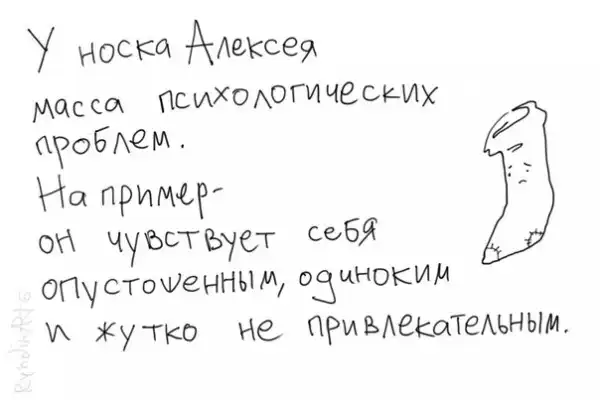 У носка Алексея
масса психологических
проблем.
На пример-
он чувствует себя
опустошенным, одиноким
и жутко не привлекательным.